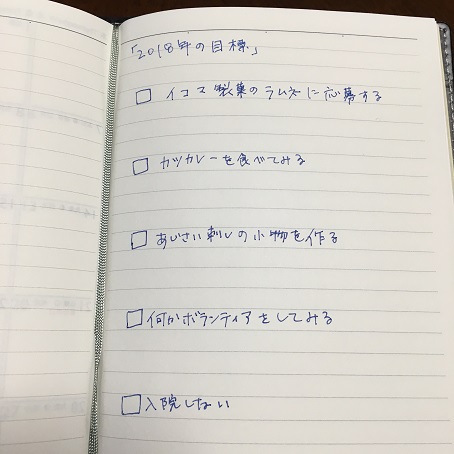 「2018年の目標」
□ イコス製菓のラムネに応募する
□ カツカレーを食べてみる
□ あじさい刺しの小物を作る
□ 何かボランティアをしてみる
□ 入院しない